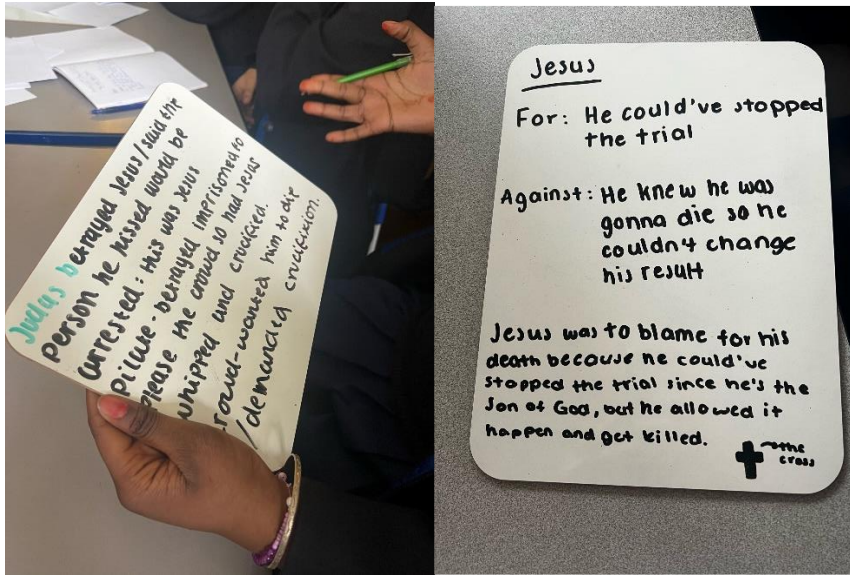 Judas betrayed Jesus/said the
person he kissed would be
arrested: this was Jesus
pilate betrayed imprisoned to
please the crowd so had Jesus
whipped and crucified.
crowd-wanted him to die
/demanded crucifixion.
Jesus
For: He could've stopped
the trial
Against: He knew he was
gonna die so he
couldn't change
his result
Jesus was to blame for his
death because he could've
stopped the trial since he's the
Son of God, but he allowed it
happen and get killed.
the
cross